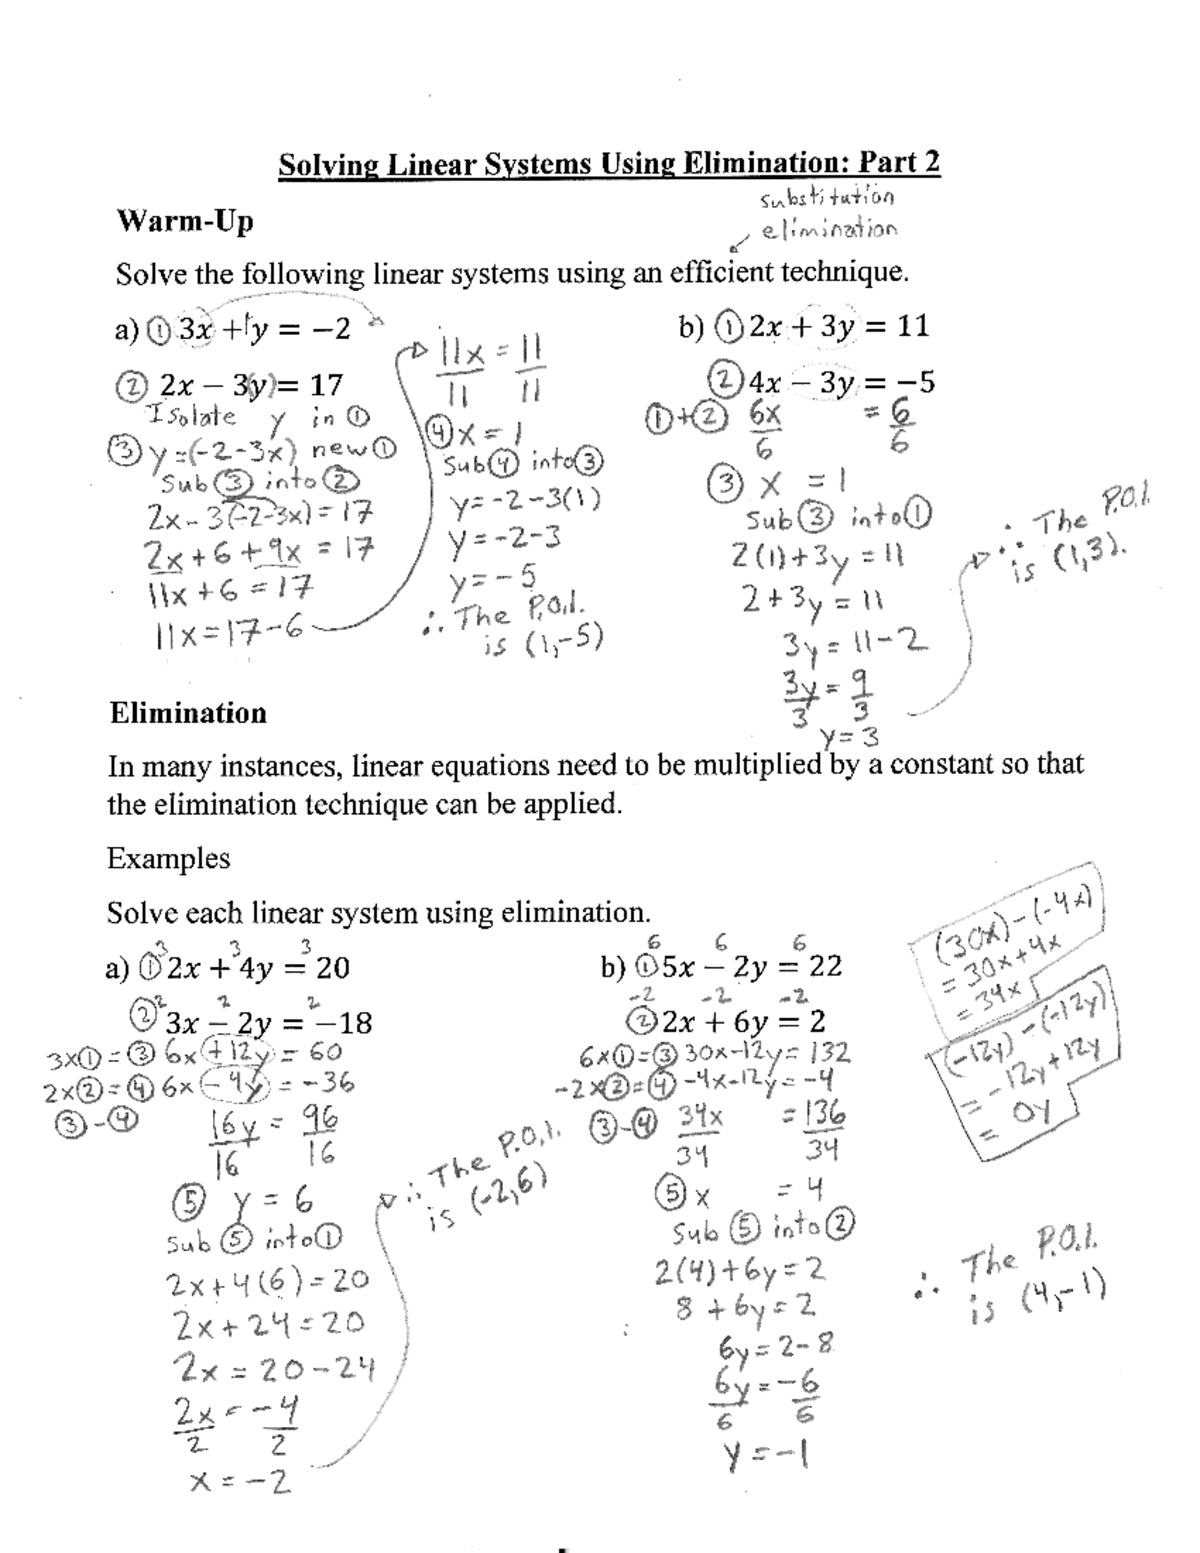 Solving Linear Systems Using Elimination: Part 2
substitution
elimination
Warm-Up
Solve the following linear systems using an efficient technique.
a) ① 3x + 1y = −2
② 2x − 3(y) = 17
Isolate y in ①
③ y = (-2-3x) new ①
Sub ③ into ②
2x - 3(-2-3x) = 17
2x + 6 + 9x = 17
11x + 6 = 17
11x = 17-6
11x = 11
11 11
④ x = 1
Sub ④ into ③
y = -2-3(1)
y = -2-3
y = -5
∴ The P.O.I.
is (1,-5)
b) ① 2x + 3y = 11
② 4x − 3y = −5
①+② 6x = 6
6 6
③ x = 1
Sub ③ into ①
2(1)+3y = 11
2+3y = 11
3y = 11-2
3y = 9
3 3
y = 3
∴ The P.O.I.
is (1,3).
Elimination
In many instances, linear equations need to be multiplied by a constant so that
the elimination technique can be applied.
Examples
Solve each linear system using elimination.
3 3 3
a) ① 2x + 4y = 20
2 2 2
② 3x − 2y = −18
3x① = ③ 6x + 12y = 60
2x② = ④ 6x - 4y = -36
③-④
16y = 96
16 16
⑤ y = 6
Sub ⑤ into ①
2x + 4(6) = 20
2x + 24 = 20
2x = 20-24
2x = -4
2 2
x = -2
∴ The P.O.I.
is (-2,6)
6 6 6
b) ① 5x − 2y = 22
-2 -2 -2
② 2x + 6y = 2
6x① = ③ 30x-12y = 132
-2x② = ④ -4x-12y = -4
③-④ 34x = 136
34 34
⑤ x = 4
Sub ⑤ into ②
2(4)+6y = 2
8 + 6y = 2
6y = 2-8
6y = -6
6 6
y = -1
(30x)-(-4x)
= 30x+4x
= 34x
(-12y)-(-12y)
= -12y+12y
= 0y
∴ The P.O.I.
is (4,-1)